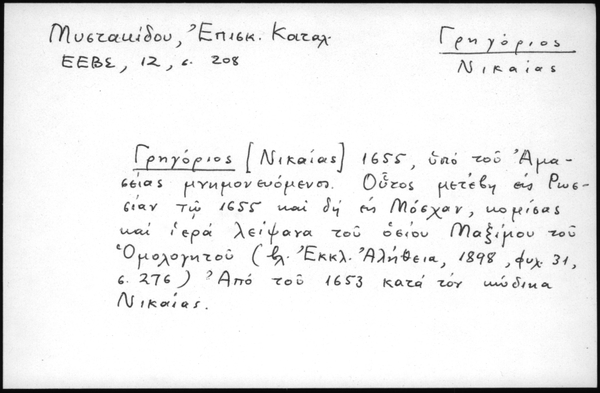 Μυστακίδου, Ἐπισκ. Καταλ.
ΕΕΒΣ, 12, σ. 208
Γρηγόριος
Νικαίας
Γρηγόριος [Νικαίας] 1655, ὑπό τοῦ Ἀμα-
σείας μνημονευόμενος. Οὗτος μετέβη εἰς Ρωσ-
σίαν τῷ 1655 καί δή εἰς Μόσχαν, κομίσας
καί ἱερά λείψανα τοῦ ὁσίου Μαξίμου τοῦ
Ὁμολογητοῦ (βλ. Ἐκκλ. Ἀλήθεια, 1898, φυλ. 31,
σ. 276) Ἀπό τοῦ 1653 κατά τόν κώδικα
Νικαίας.